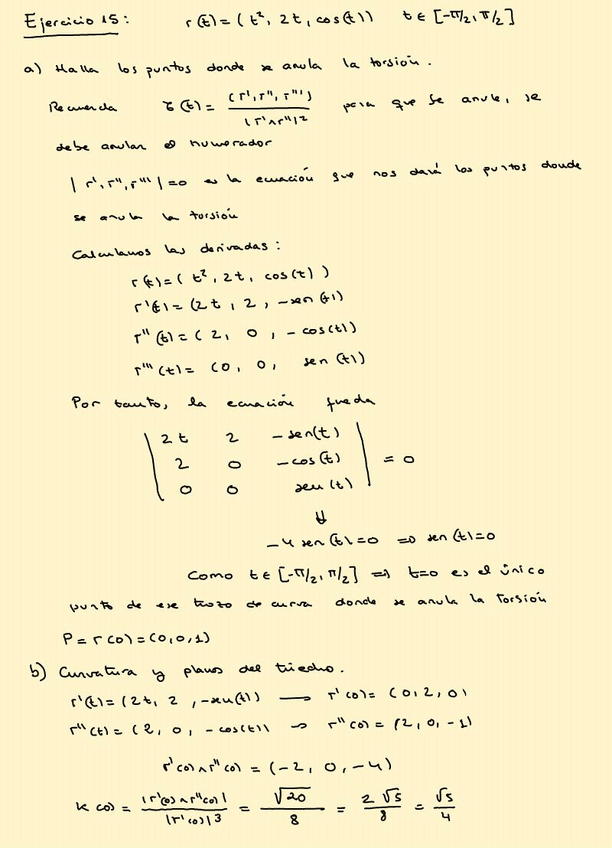 Ejercicio 15: r(t)=(t², 2t, cos(t)) t∈[-π/2, π/2]
a) Halla los puntos donde se anula la torsión.
Recuerda τ(t) = (r', r'', r''') / |r'∧r''|² para que se anule, se
debe anular el numerador
|r', r'', r'''|=0 es la ecuación que nos dará los puntos donde
se anula la torsión
Calculamos las derivadas:
r(t)=(t², 2t, cos(t))
r'(t)=(2t, 2, -sen(t))
r''(t)=(2, 0, -cos(t))
r'''(t)=(0, 0, sen(t))
Por tanto, la ecuación queda
| 2t 2 -sen(t) |
| 2 0 -cos(t) | = 0
| 0 0 sen(t) |
⇓
-4 sen(t)=0 => sen(t)=0
Como t∈[-π/2, π/2] => t=0 es el único
punto de ese trozo de curva donde se anula la torsión
P=r(0)=(0,0,1)
b) Curvatura y planos del triedro.
r'(t)=(2t, 2, -sen(t)) → r'(0)=(0,2,0)
r''(t)=(2, 0, -cos(t)) → r''(0)=(2,0,-1)
r'(0)∧r''(0)=(-2, 0, -4)
K(0) = |r'(0)∧r''(0)| / |r'(0)|³ = √20 / 8 = 2√5 / 8 = √5 / 4